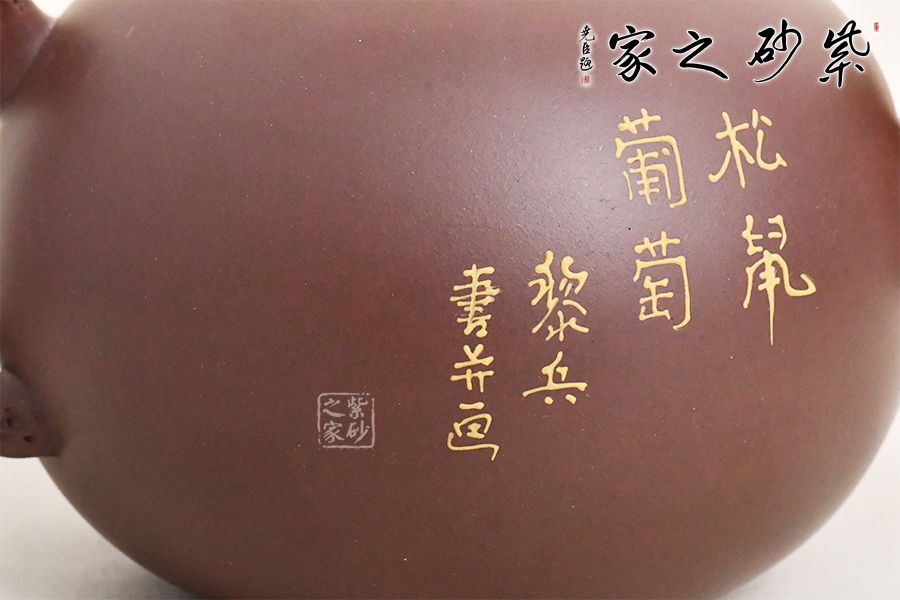 紫砂之家
尧臣题
松鼠
葡萄
黎兵
書并画
紫砂之家